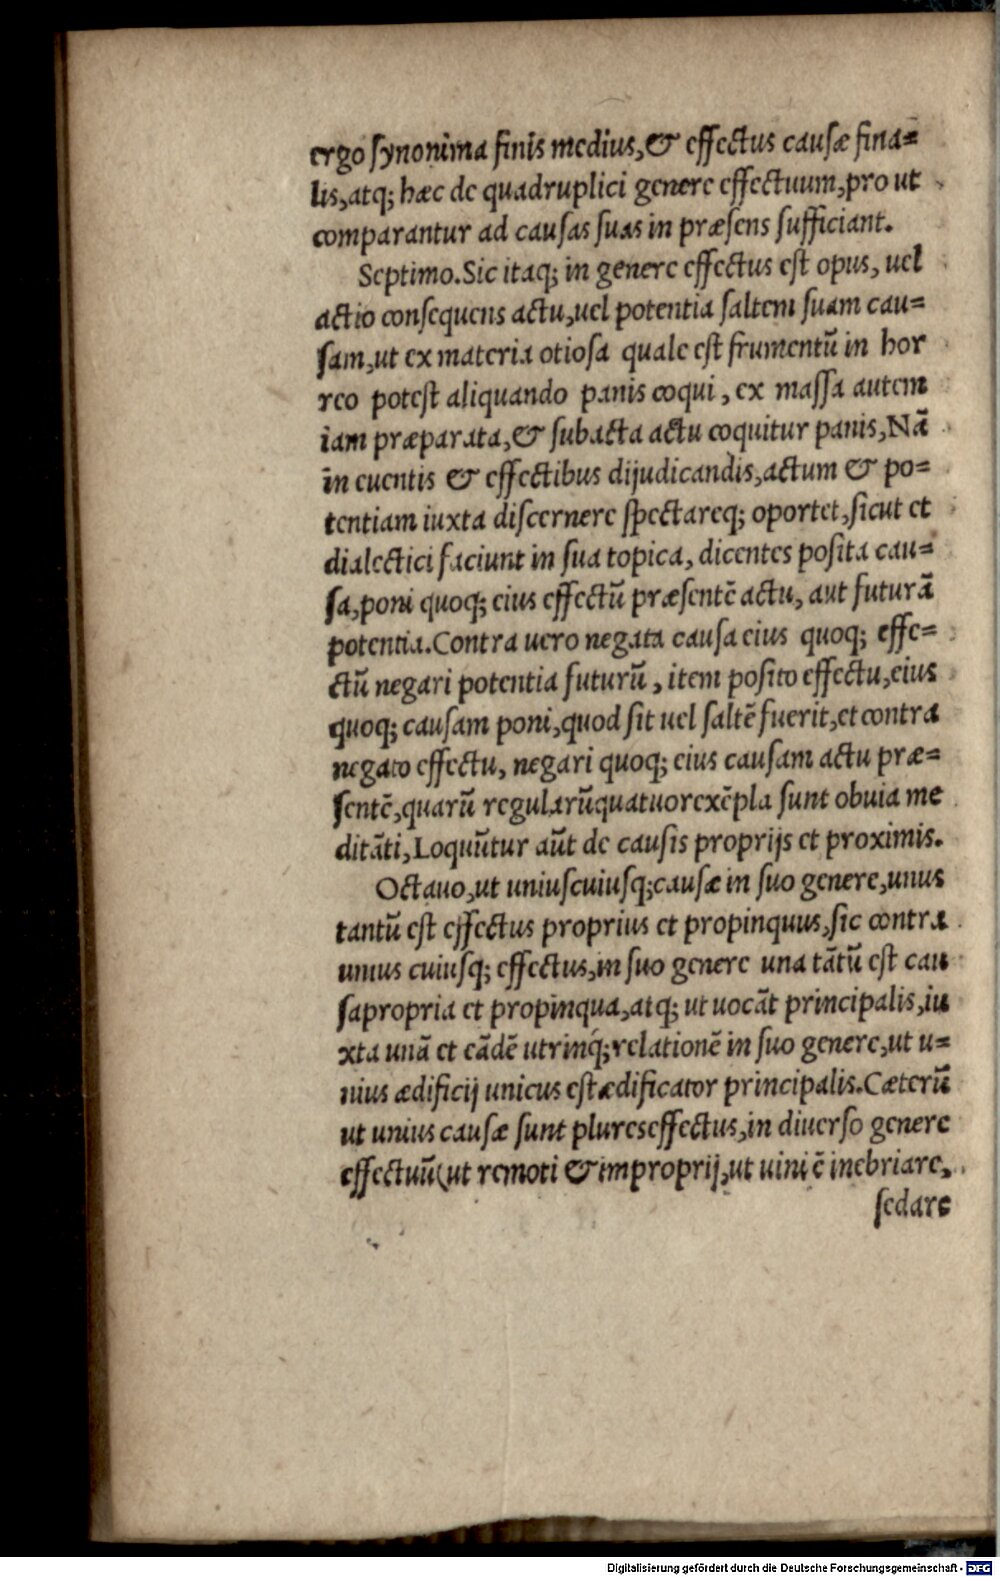 ergo ſynonima finis medius,& effectus cauſæ fina=
lis,atq; hæc de quadruplici genere effectuum,pro ut
comparantur ad cauſas ſuas in præſens ſufficiant.
Septimo.Sic itaq; in genere effectus eſt opus, uel
actio conſequens actu,uel potentia ſaltem ſuam cau=
ſam,ut ex materia otioſa quale eſt frumentū in hor
reo poteſt aliquando panis coqui, ex maſſa autem
iam præparata,& ſubacta actu coquitur panis,Nā
in euentis & effectibus dijudicandis,actum & po=
tentiam iuxta diſcernere ſpectareq; oportet,ſicut et
dialectici faciunt in ſua topica, dicentes poſita cau=
ſa,poni quoq; eius effectū præſentē actu, aut futurā
potentia.Contra uero negata cauſa eius quoq; effe=
ctū negari potentia futurū, item poſito effectu,eius
quoq; cauſam poni,quod ſit uel ſaltē fuerit,et contra
negato effectu, negari quoq; eius cauſam actu præ=
ſentē,quarū regularūquatuorexēpla ſunt obuia me
ditāti,Loquūtur aūt de cauſis proprijs et proximis.
Octauo,ut uniuſcuiuſq;cauſæ in ſuo genere,unus
tantū eſt effectus proprius et propinquus,ſic contra
unius cuiuſq; effectus,in ſuo genere una tātū eſt cau
ſapropria et propinqua,atq; ut uocāt principalis,iu
xta unā et eādē utrinq́;relationē in ſuo genere,ut u=
nius ædificij unicus eſtædificator principalis.Cæterū
ut unius cauſæ ſunt plureseffectus,in diuerſo genere
effectuū(ut remoti &improprij,ut uini ē inebriare,
ſedare
Digitalisierung gefördert durch die Deutsche Forschungsgemeinschaft - DFG